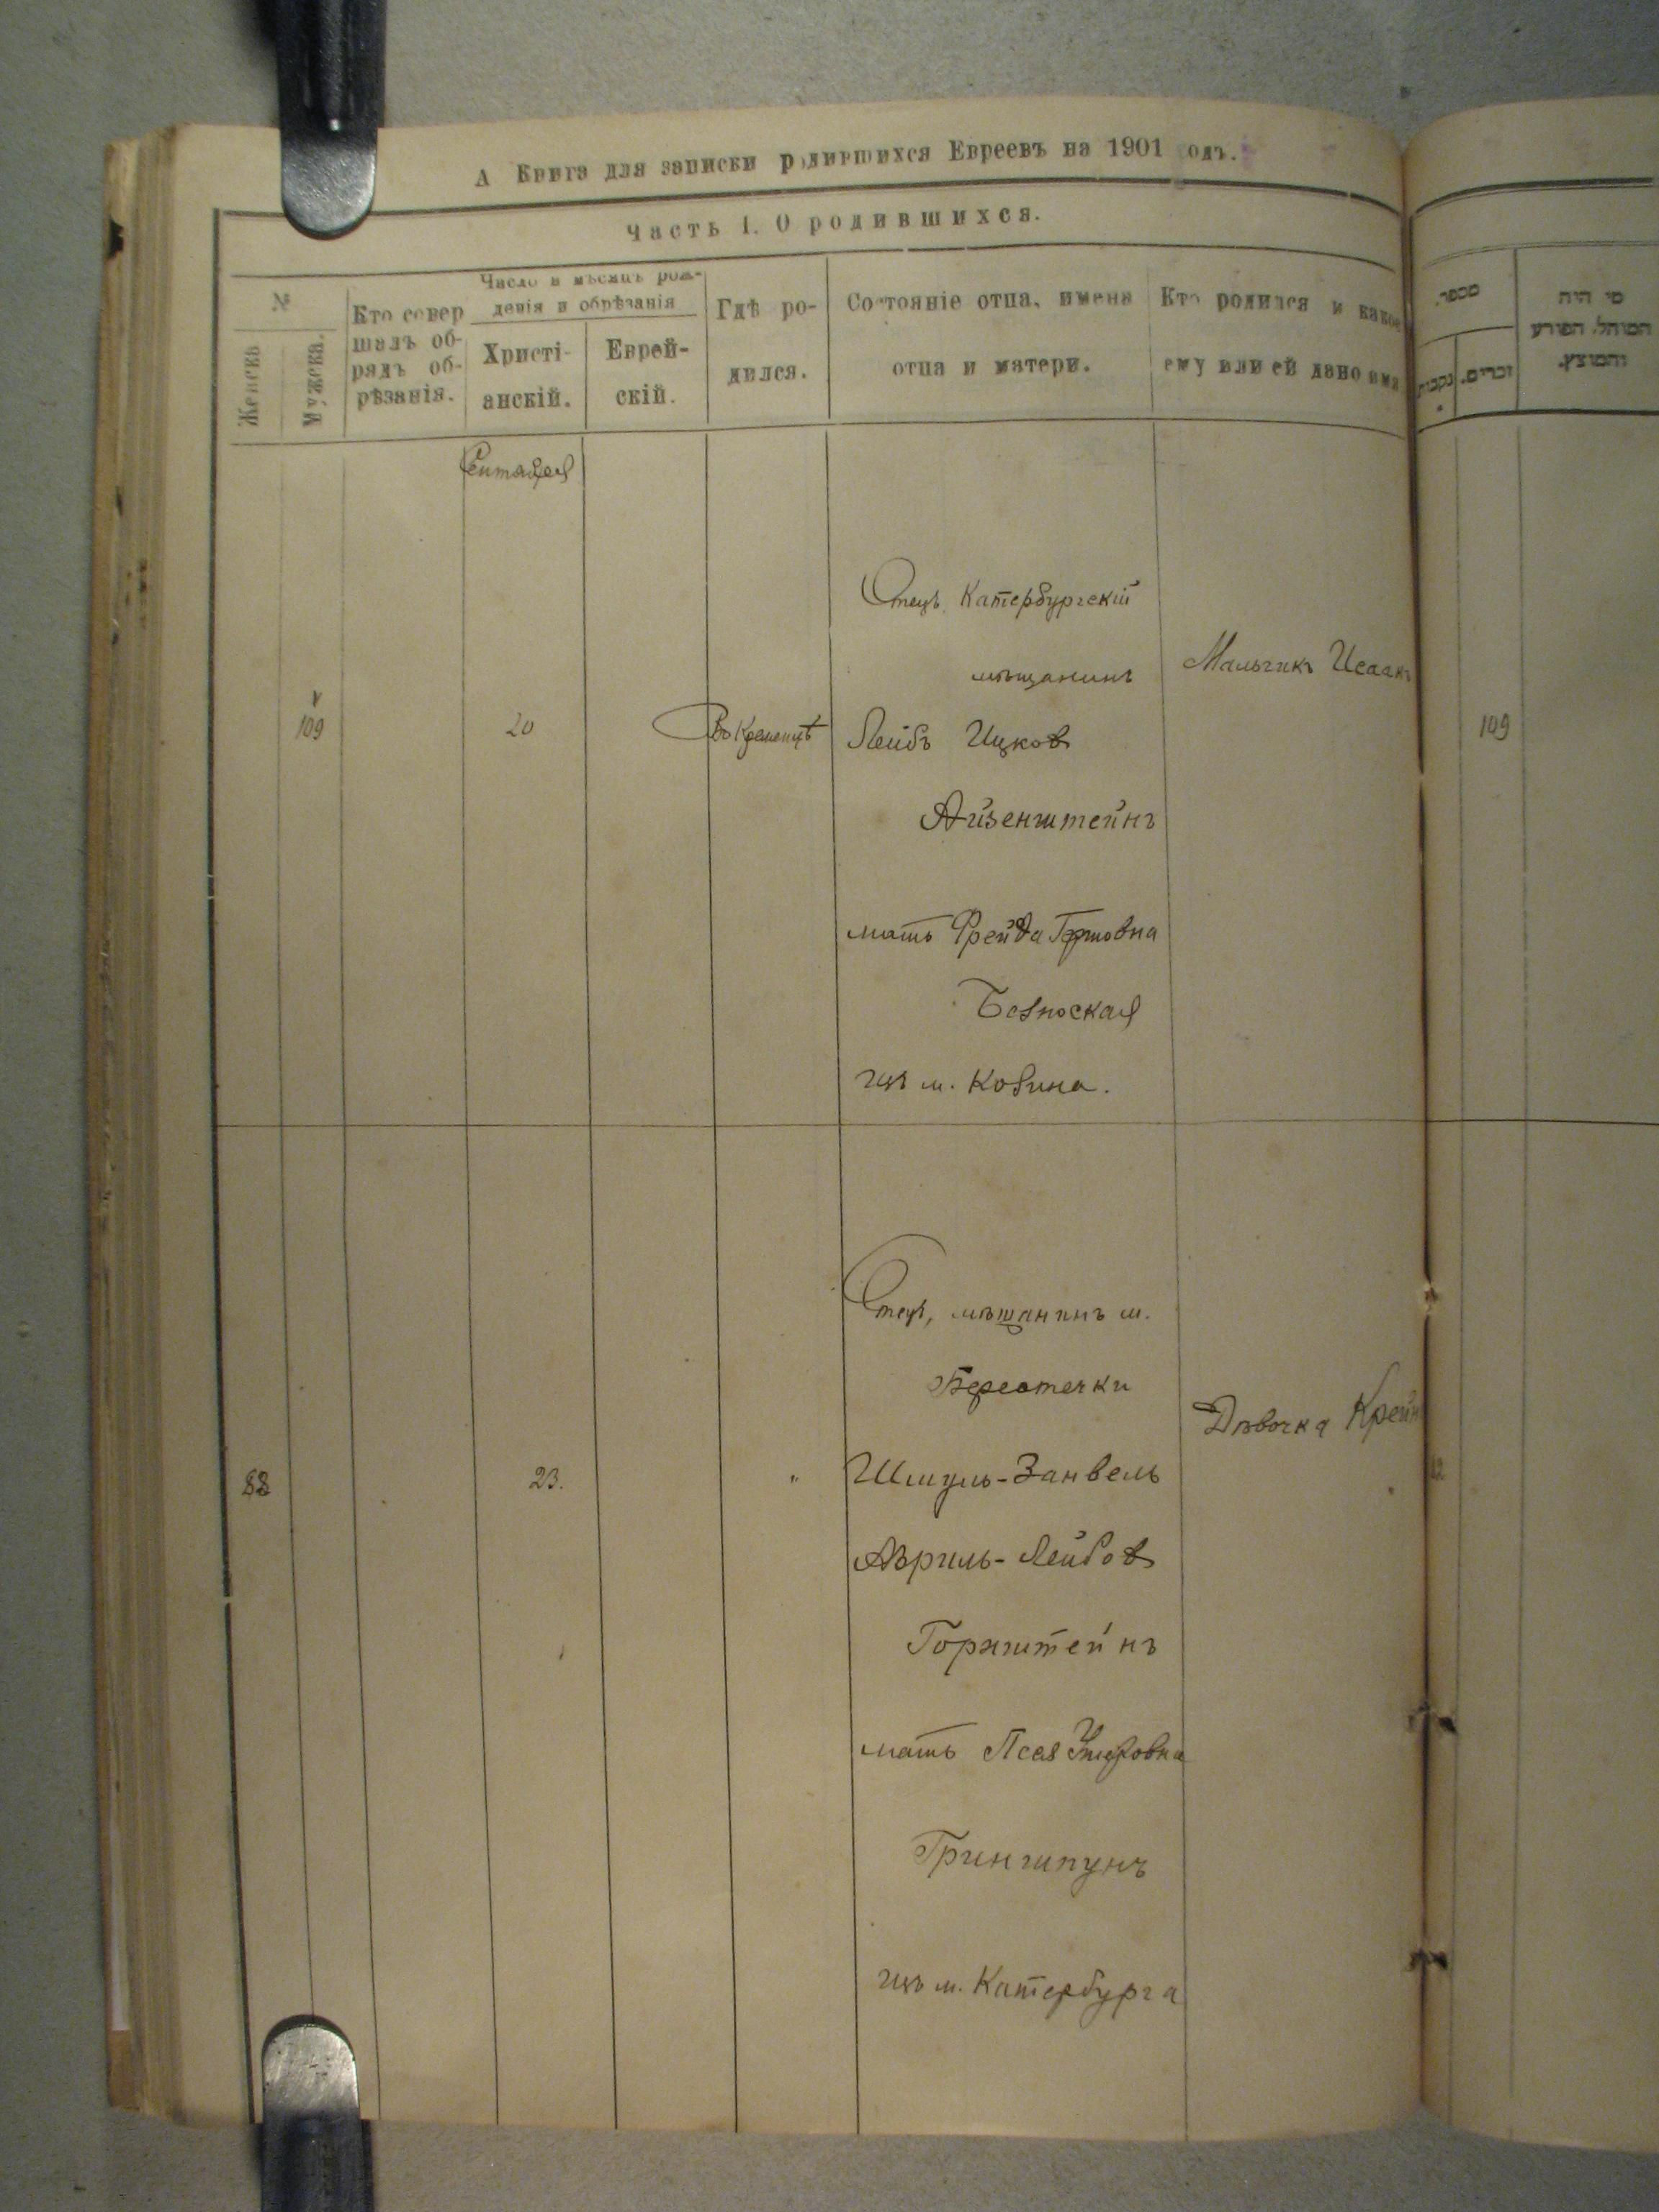 А Книга для записки родившихся Евреевъ на 1901 одъ.
Часть I. О родившихся.
№
Женска
Мужска.
Кто совер
шалъ об-
рядъ об-
рѣзанія.
Число и мѣсяцъ рож-
денія и обрѣзанія
Христі-
анскій.
Еврей-
скій.
Гдѣ ро-
дился.
Состояніе отца, имена
отца и матери.
Кто родился и какое
ему или ей дано имя
מספר.
נקבות
זכרים.
מי היה
המוהל, הפורע
והמוצץ.
Сентября
109
20
Въ Кременцѣ
Отецъ Катербургскій
мѣщанинъ
Лейбъ Ицков
Айзенштейнъ
мать Фрейда Гершовна
Безноская
изъ м. Козина.
Мальчикъ Исаакъ
109
88
23.
"
Отецъ, мѣщанинъ м.
Берестечки
Шмуль-Занвель
Азриль-Лейбов
Горнштейнъ
мать Песя
Гриншпунъ
изъ м. Катербурга
Дѣвочка Крейн